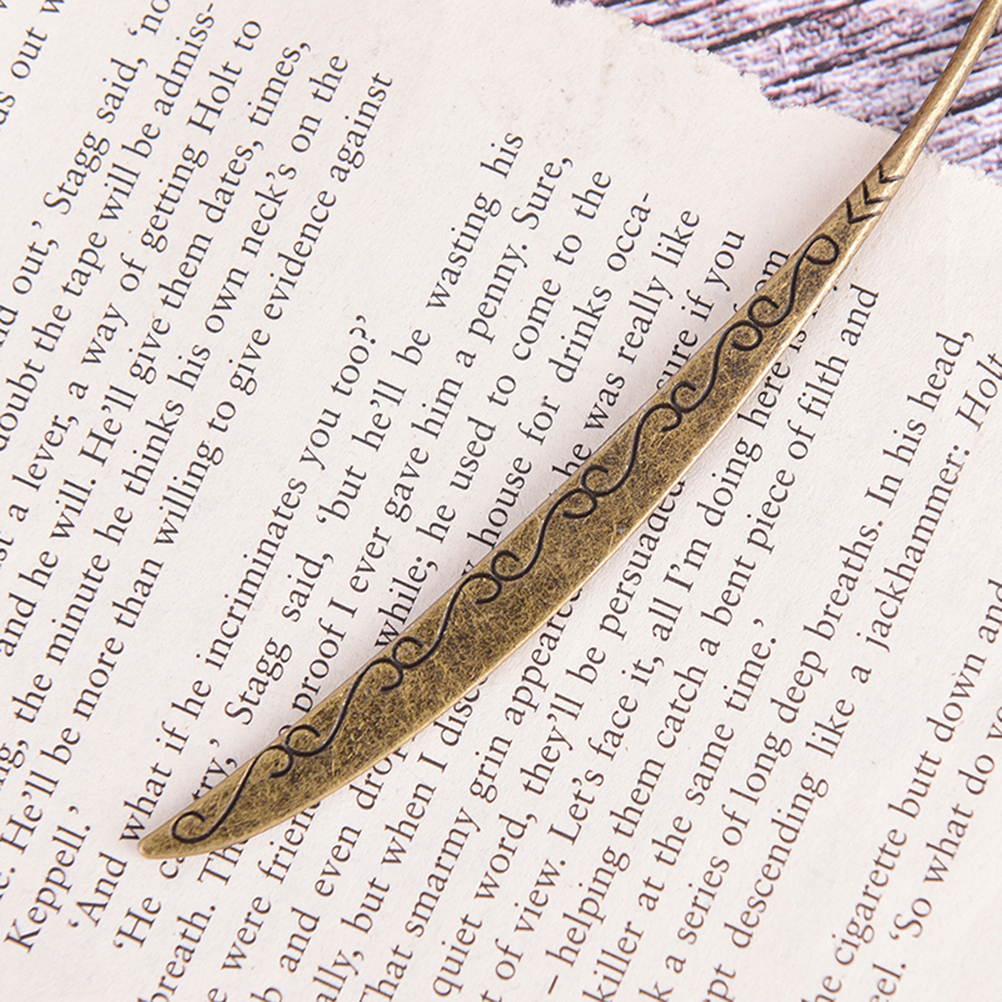 out w
out,’ Stagg said, ‘no
doubt the tape will be admiss-
a lever, a way of getting Holt to
and he will. He’ll give them dates, times,
the minute he thinks his own neck’s on the
He’ll be more than willing to give evidence against
Keppell.’
‘And what if he incriminates you too?’
‘He try,’ Stagg said, ‘but he’ll be wasting his
breath. proof I ever gave him a penny. Sure,
we were while; he used to come to the
and even house for drinks occa-
ally, but when I he was really like
That smarmy grin sure if you
quiet word, they’ll be
of view. Let’s face it, all I’m doing here is
– helping them catch a bent piece of filth and
killer at the same time.’
a series of long deep breaths. In his head,
descending like a jackhammer: Holt
cigarette butt down and
‘So what do